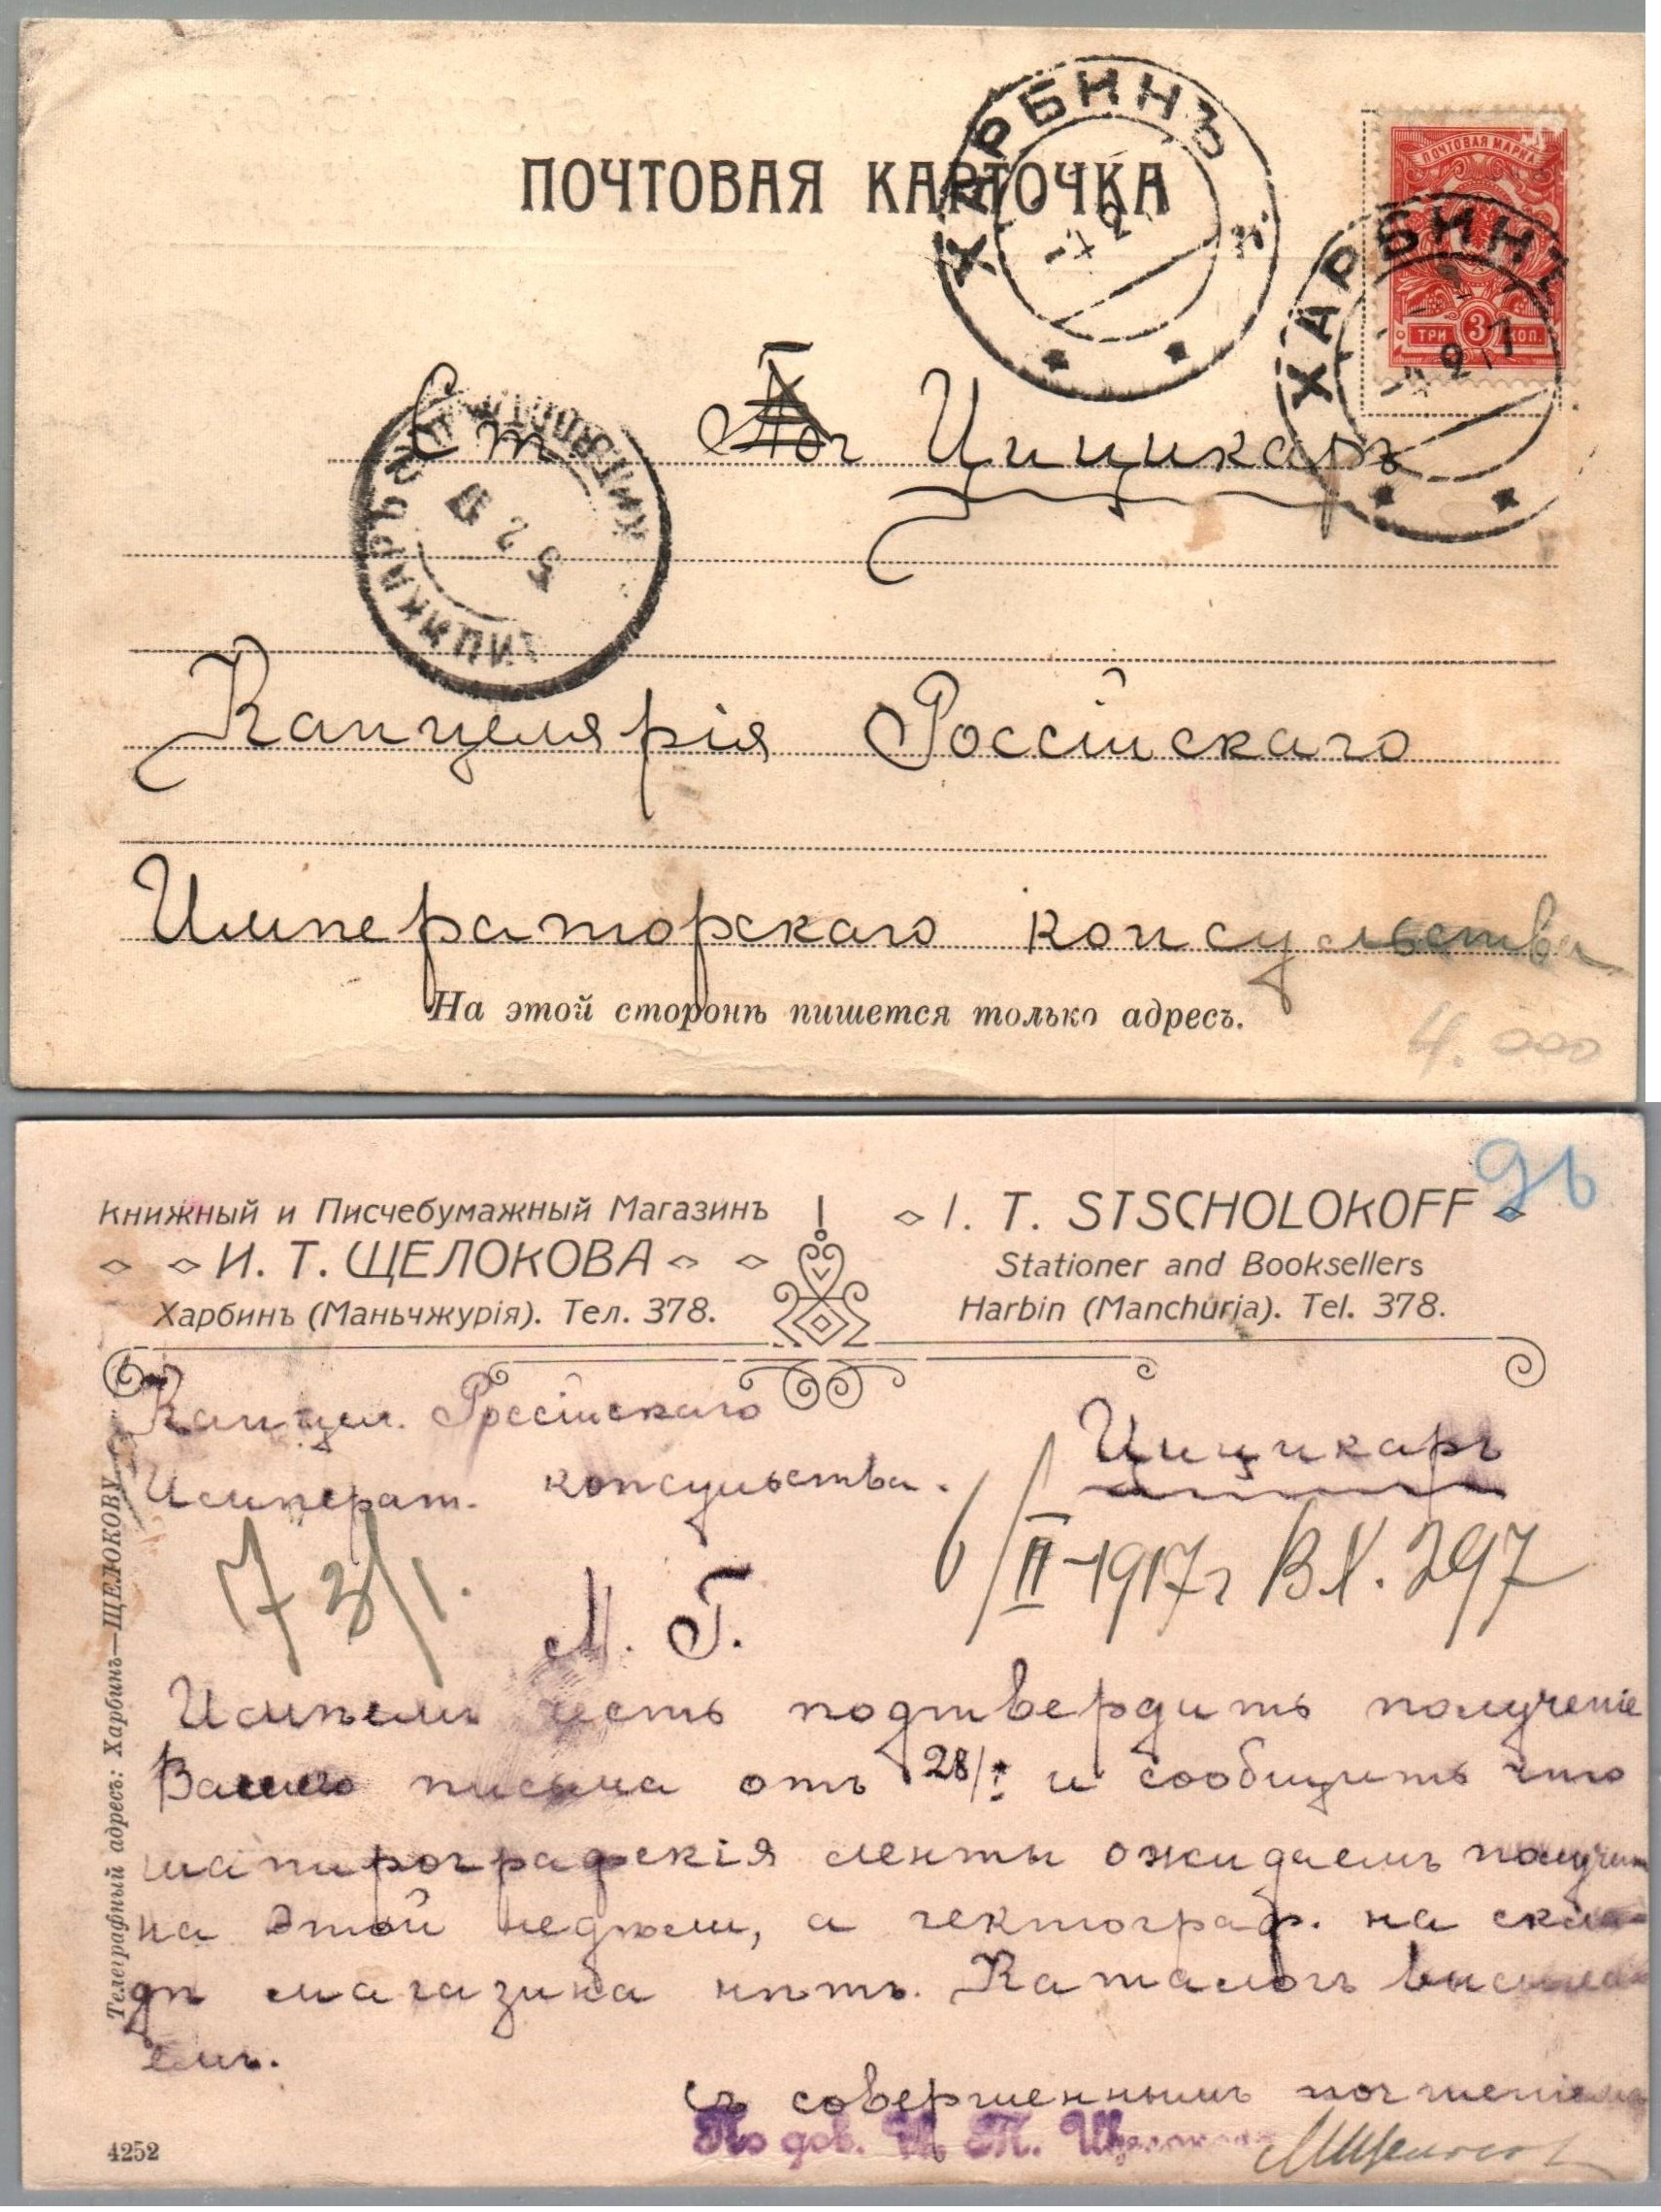 ПОЧТОВАЯ КАРТОЧКА
ХАРБИНЪ
ПОЧТОВАЯ МАРКА
ТРИ 3 КОП.
ХАРБИНЪ
Ст Цицикаръ
5 2 17
Канцелярія Россійскаго
Императорскаго консульства
На этой сторонѣ пишется только адресъ.
4.000
Книжный и Писчебумажный Магазинъ
И. Т. ЩЕЛОКОВА
Харбинъ (Маньчжурія). Тел. 378.
I. T. STSCHOLOKOFF
Stationer and Booksellers
Harbin (Manchuria). Tel. 378.
Телеграфный адресъ: Харбинъ—ЩЕЛОКОВУ.
Канцел. Россійскаго
Императ. консульства.
Цицикаръ
6/II-1917г Вх. 297
М. Г.
Имѣемъ честь подтвердить полученіе
Вашего письма отъ 28/I и сообщить что
шапирографскія ленты ожидаемъ получить
на этой недѣли, а гектограф. на скла-
дѣ магазина нѣтъ. Каталогъ высыла
емъ.
съ совершеннымъ почтеніемъ
По дов. И. Т. Щелокова
4252